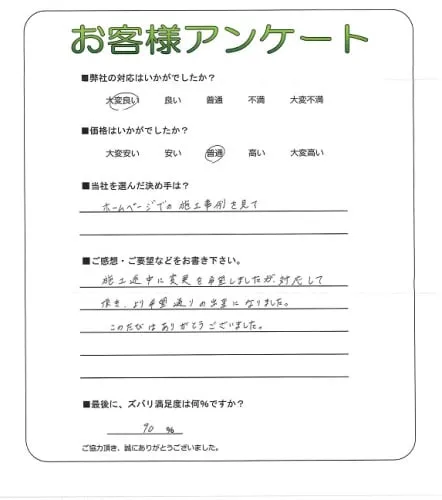 お客様アンケート
■弊社の対応はいかがでしたか?
大変良い 良い 普通 不満 大変不満
■価格はいかがでしたか?
大変安い 安い 普通 高い 大変高い
■当社を選んだ決め手は?
ホームページでの施工事例を見て
■ご感想・ご要望などをお書き下さい。
施工途中に変更を希望しましたが、対応して
頂き、より希望通りの出来になりました。
このたびはありがとうございました。
■最後に、ズバリ満足度は何%ですか?
90 %
ご協力頂き、誠にありがとうございました。